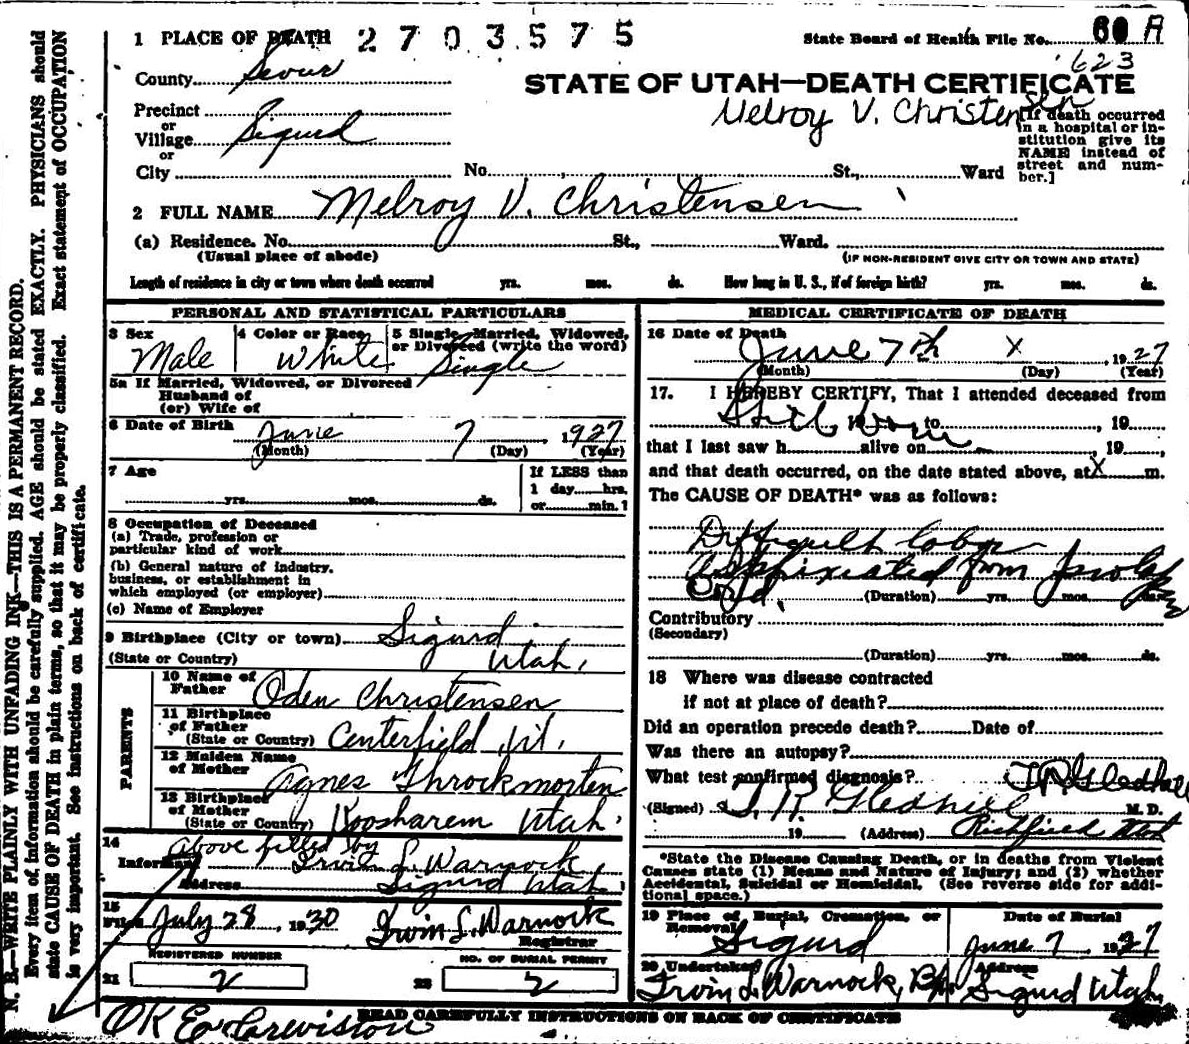 N. B.—WRITE PLAINLY WITH UNFADING INK—THIS IS A PERMANENT RECORD.
Every item of information should be carefully supplied. AGE should be stated EXACTLY. PHYSICIANS should
state CAUSE OF DEATH in plain terms, so that it may be properly classified. Exact statement of OCCUPATION
is very important. See instructions on back of certificate.
1 PLACE OF DEATH 2703575 State Board of Health File No. 60 A
623
County Sevier
STATE OF UTAH—DEATH CERTIFICATE
Melroy V. Christensen
Precinct
or
Village Sigurd
or
City No. St., Ward
[If death occurred
in a hospital or in-
stitution give its
NAME instead of
street and num-
ber.]
2 FULL NAME Melroy V. Christensen
(a) Residence. No. St., Ward.
(Usual place of abode) (IF NON-RESIDENT GIVE CITY OR TOWN AND STATE)
Length of residence in city or town where death occurred yrs. mos. ds. How long in U. S., if of foreign birth? yrs. mos. ds.
PERSONAL AND STATISTICAL PARTICULARS
3 Sex 4 Color or Race 5 Single, Married, Widowed,
or Divorced (write the word)
Male White Single
5a If Married, Widowed, or Divorced
Husband of
(or) Wife of
6 Date of Birth June 7, 1927
(Month) (Day) (Year)
7 Age If LESS than
1 day hrs.
yrs. mos. ds. or min. ?
8 Occupation of Deceased
(a) Trade, profession or
particular kind of work
(b) General nature of industry,
business, or establishment in
which employed (or employer)
(c) Name of Employer
9 Birthplace (City or town) Sigurd
(State or Country) Utah.
PARENTS
10 Name of
Father Oden Christensen
11 Birthplace
of Father
(State or Country) Centerfield, Ut.
12 Maiden Name
of Mother Agnes Throckmorten
13 Birthplace
of Mother
(State or Country) Koosharem Utah.
14 Above filled by
Informant Irvin L. Warnock
Address Sigurd Utah
15
Filed July 28, 1930 Irvin L. Warnock
Registrar
REGISTERED NUMBER NO. OF BURIAL PERMIT
21 2 22 2
MEDICAL CERTIFICATE OF DEATH
16 Date of Death
June 7th X, 1927
(Month) (Day) (Year)
17. I HEREBY CERTIFY, That I attended deceased from
Still born 19 to , 19
that I last saw h alive on , 19
and that death occurred, on the date stated above, at X m.
The CAUSE OF DEATH* was as follows:
Difficult labor
Asphixiated from prolapsed
Cord.
(Duration) yrs. mos. ds.
Contributory
(Secondary)
(Duration) yrs. mos. ds.
18 Where was disease contracted
if not at place of death?
Did an operation precede death? Date of
Was there an autopsy?
What test confirmed diagnosis? T R Gledhill
(Signed) T. R. Gledhill M. D.
19 (Address) Richfield Utah
*State the Disease Causing Death, or in deaths from Violent
Causes state (1) Means and Nature of Injury; and (2) whether
Accidental, Suicidal or Homicidal. (See reverse side for addi-
tional space.)
19 Place of Burial, Cremation, or Date of Burial
Removal
Sigurd June 7, 1927
20 Undertaker Address
Irvin L. Warnock, Sigurd Utah
READ CAREFULLY INSTRUCTIONS ON BACK OF CERTIFICATE
OK